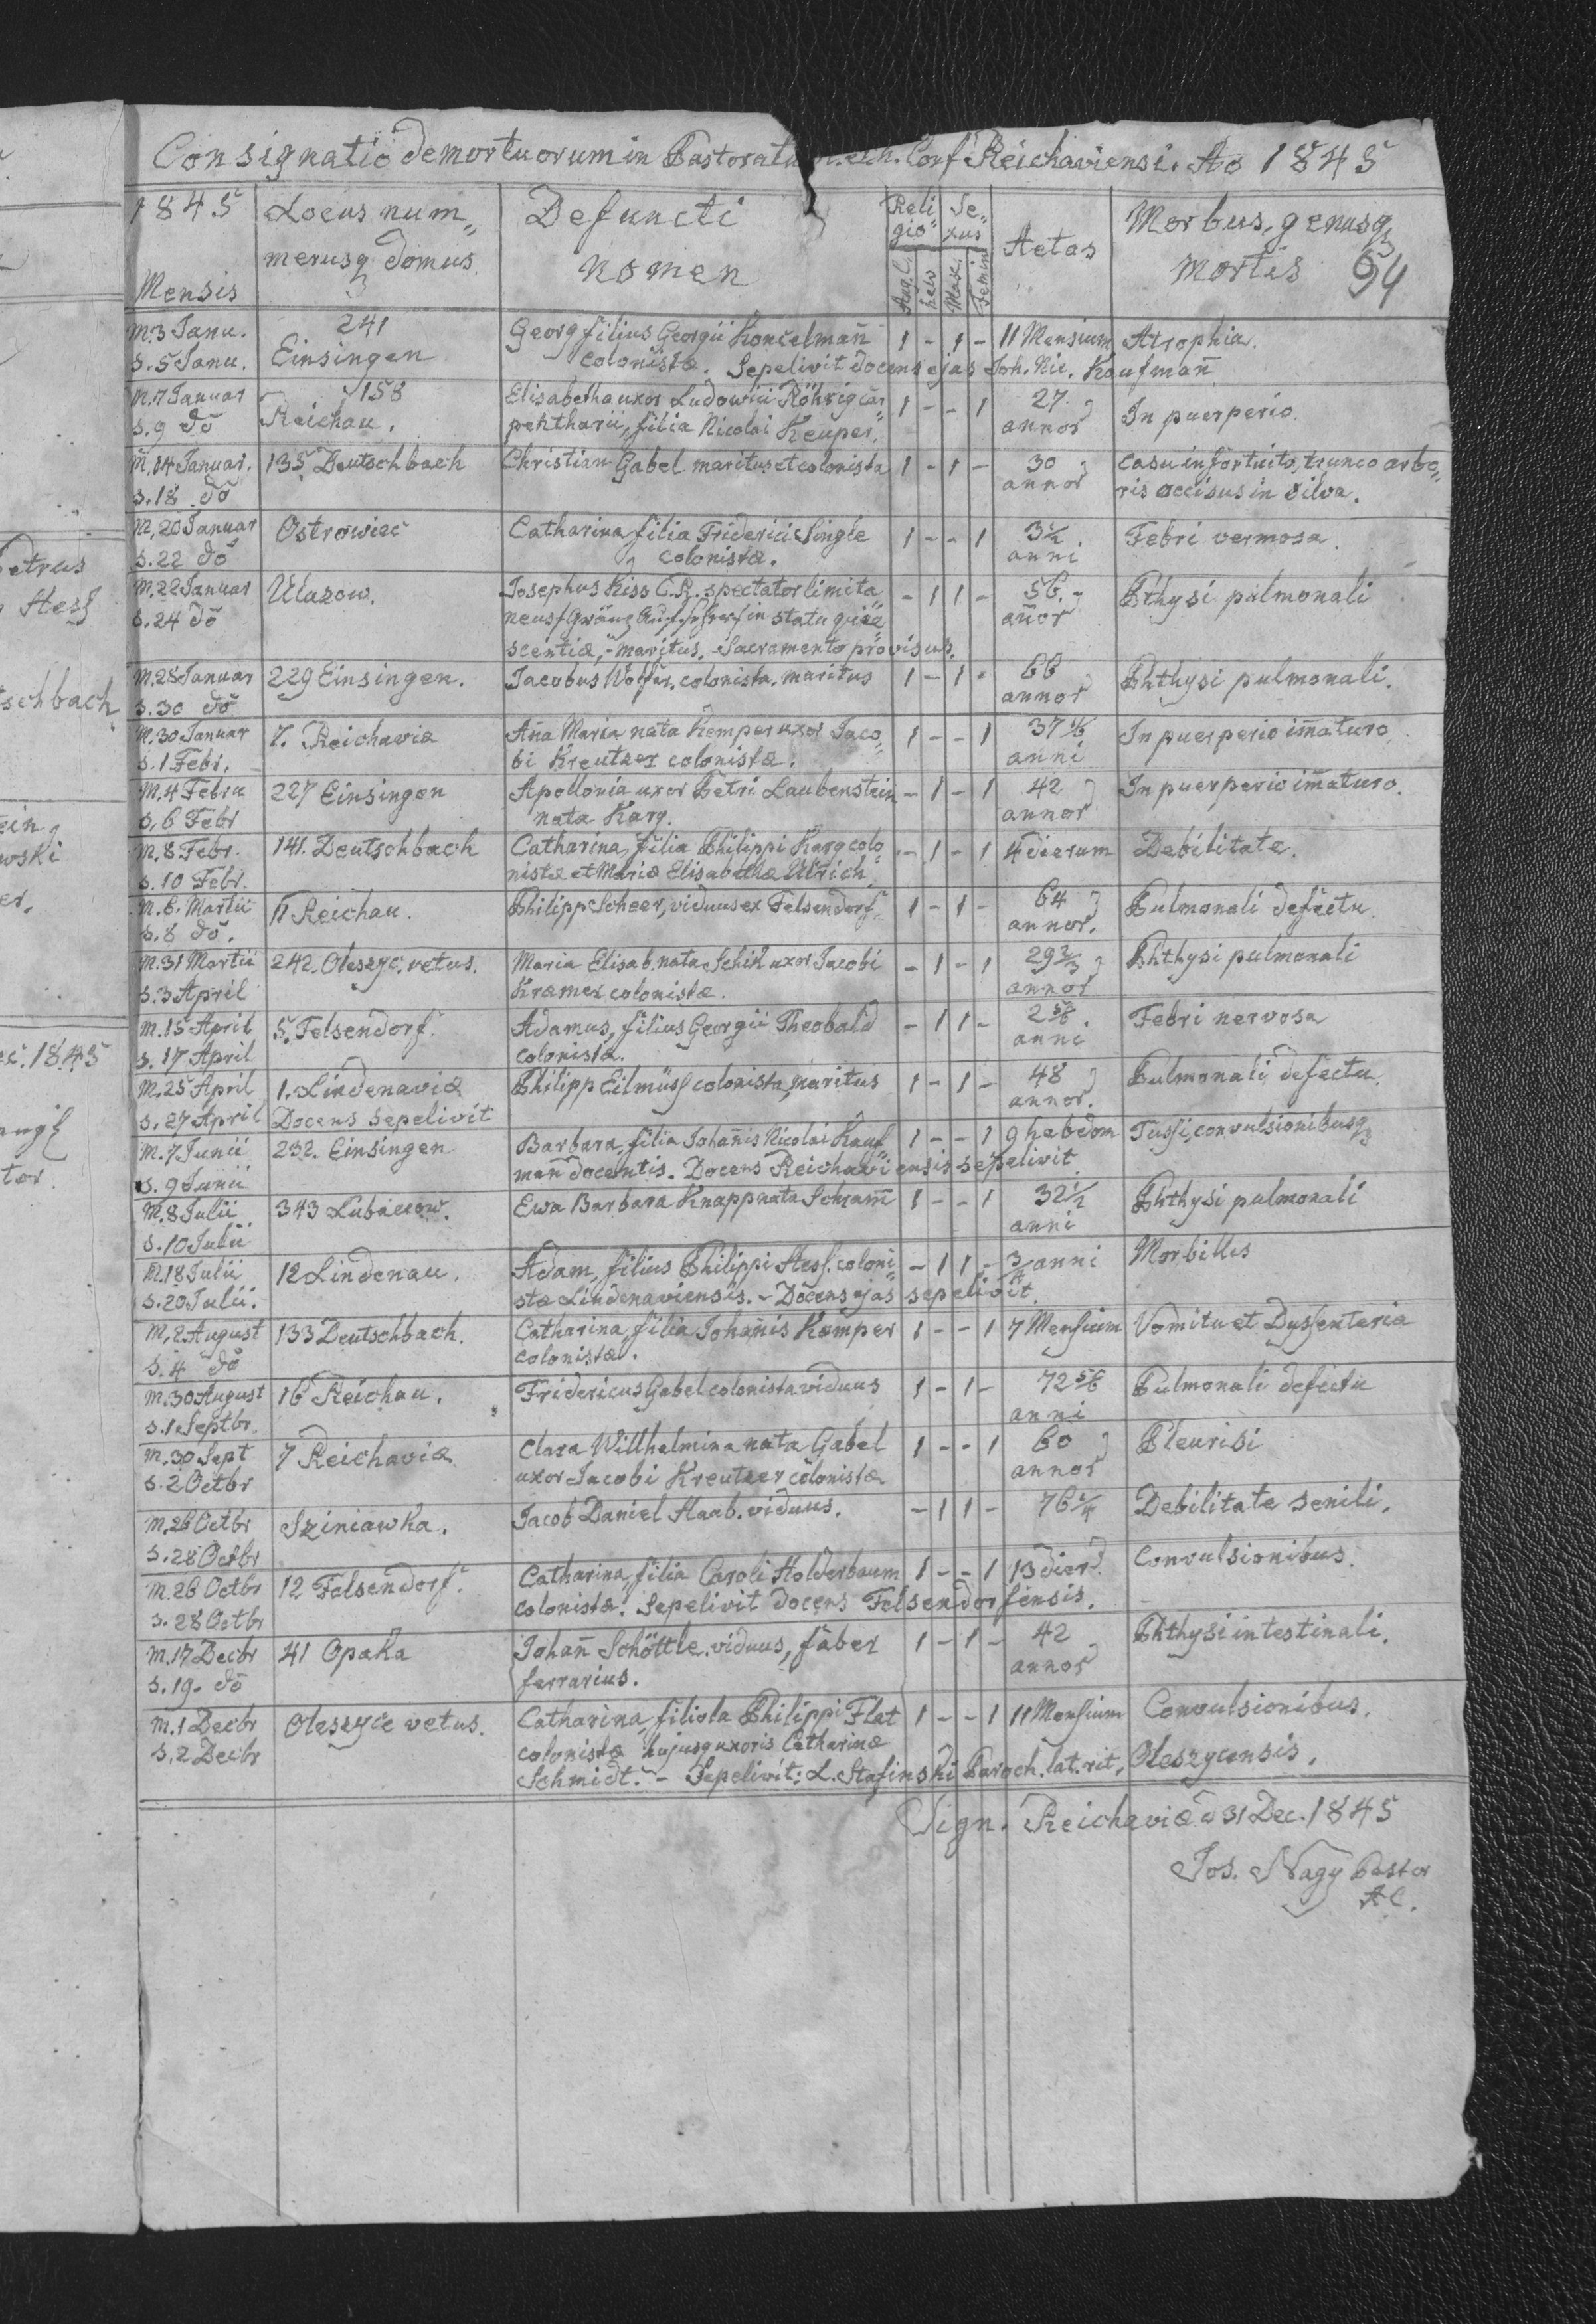 Consignatio demortuorum in Pastoratu Conf Reichaviensi. Ao 1845
1845 Mensis
Locus num„ merusq domus
Defuncti nomen
Reli„ gio Aug. C. helv
Se„ xus Masc. Femin
Aetas
Morbus, genusq mortis
94
M.3 Janu. 241 Georg filius Georgii Končelmañ 1 - 1 - 11 Mensium Atrophia.
S.5 Janu. Einsingen colonistæ. Sepelivit docens ejas Joh. Nic. Kaufmañ
M.7 Januar 158 Elisabetha uxor Ludowici Röhrig car„ 1 - - 1 27 In puerperio.
S.9 do Reichau. pentharii, filia Nicolai Keuper. annor
M.14 Januar. 135 Deutschbach Christian Gabel maritus et colonista 1 - 1 - 30 Casu infortuito, trunco arbo„
S.18 do annor ris occisus in silva.
M.20 Januar Ostrowiec Catharina filia Friderici Single 1 - - 1 3½ Febri vermosa.
S.22 do colonistæ. anni
M.22 Januar Ulazow. Josephus Kiss C.R. spectator limita„ - 1 1 - 56 Pthysi pulmonali
S.24 do neus in statu quie„ añor
scentiæ, - maritus. - Sacramento provisus.
M.28 Januar 229 Einsingen. Jacobus Wolfer. colonista. maritus 1 - 1 - 66 Phthysi pulmonali.
S.30 do annor
M.30 Januar 7. Reichaviæ Aña Maria nata Kemper uxor Jaco„ 1 - - 1 37 1/6 In puerperio im̃aturo
S.1 Febr. bi Kreutzer colonistæ. anni
M.4 Febru 227 Einsingen Apollonia uxor Petri Laubenstein - 1 - 1 42 In puerperio im̃aturo.
S.6 Febr nata Karg. annor
M.8 Febr. 141. Deutschbach Catharina, filia Philippi Karg colo„ - 1 - 1 4 dierum Debilitate.
S.10 Febr. nistæ et Mariæ Elisabethæ Ulrich.
M.6. Martii 11 Reichau. Philipp Scheer, viduus ex Felsendorf 1 - 1 - 64 Pulmonali defectu.
S.8 do. annor.
M.31 Martii 242. Oleszyc. vetus. Maria Elisab. nata Schik uxor Jacobi - 1 - 1 29 2/3 Phthysi pulmonali
S.3 April Kræmer colonistæ. annor
M.15 April 5. Felsendorf. Adamus, filius Georgii Theobald - 1 1 - 2 5/6. Febri nervosa
S.17 April colonistæ. anni
M.25 April 1. Lindenaviæ Philipp Eilmüss colonista, maritus 1 - 1 - 48 Pulmonali defectu.
S.27 April Docens sepelivit annor.
M.7 Junii 232. Einsingen Barbara, filia Johañis Nicolai Kauf„ 1 - - 1 9 hebdom Tussi, convulsionibusq
S.9 Junii mañ docentis. Docens Reichaviensis sepelivit
M.8 Julii 343 Lubaczow. Ewa Barbara Knapp nata Schram̃ 1 - - 1 32½ Phthysi pulmonali
S.10 Julii anni
M.18 Julii 12 Lindenau. Adam, filius Philippi Hess. coloni„ - 1 1 - 3/4 anni Morbilles
S.20 Julii. stæ Lindenaviensis. - Docens ejas sepelivit
M.2 August 133 Deutschbach. Catharina, filia Johañis Kemper 1 - - 1 7 Mensium Vomitu et Dyssenteria
S.4 do colonistæ.
M.30 August 16 Reichau. Fridericus Gabel colonista viduus 1 - 1 - 72 5/6 Pulmonali defectu
S.1 Septbr. anni
M.30 Sept 7 Reichaviæ Clara Willhelmina nata Gabel 1 - - 1 60 Pleurisi
S.2 Octbr uxor Jacobi Kreutzer colonistæ annor
M.26 Octbr Sziniawka. Jacob Daniel Haab. viduus. - 1 1 - 76 1/4 Debilitate senili.
S.28 Octbr
M.26 Octbr 12 Felsendorf. Catharina, filia Caroli Holderbaum 1 - - 1 13 dier Convulsionibus.
S.28 Octbr colonistæ. Sepelivit docens Felsendorfensis.
M.17 Decbr 41 Opaka Johañ Schöttle. viduus, faber 1 - 1 - 42 Phthysi intestinali.
S.19. do ferrarius. annor
M.1 Decbr Oleszyce vetus. Catharina, filiola Philippi Flat 1 - - 1 11 Mensium Convulsionibus.
S.2 Decbr colonistæ hujusq uxoris Catharinæ
Schmidt. - Sepelivit: L. Stafinski Paroch. lat. rit. Oleszycensis.
Sign. Reichaviæ d 31 Dec. 1845
Jos. Nagy Pastor
AC.
etrus
Hess
schbach
ein
wski
er.
ec. 1845
tor.